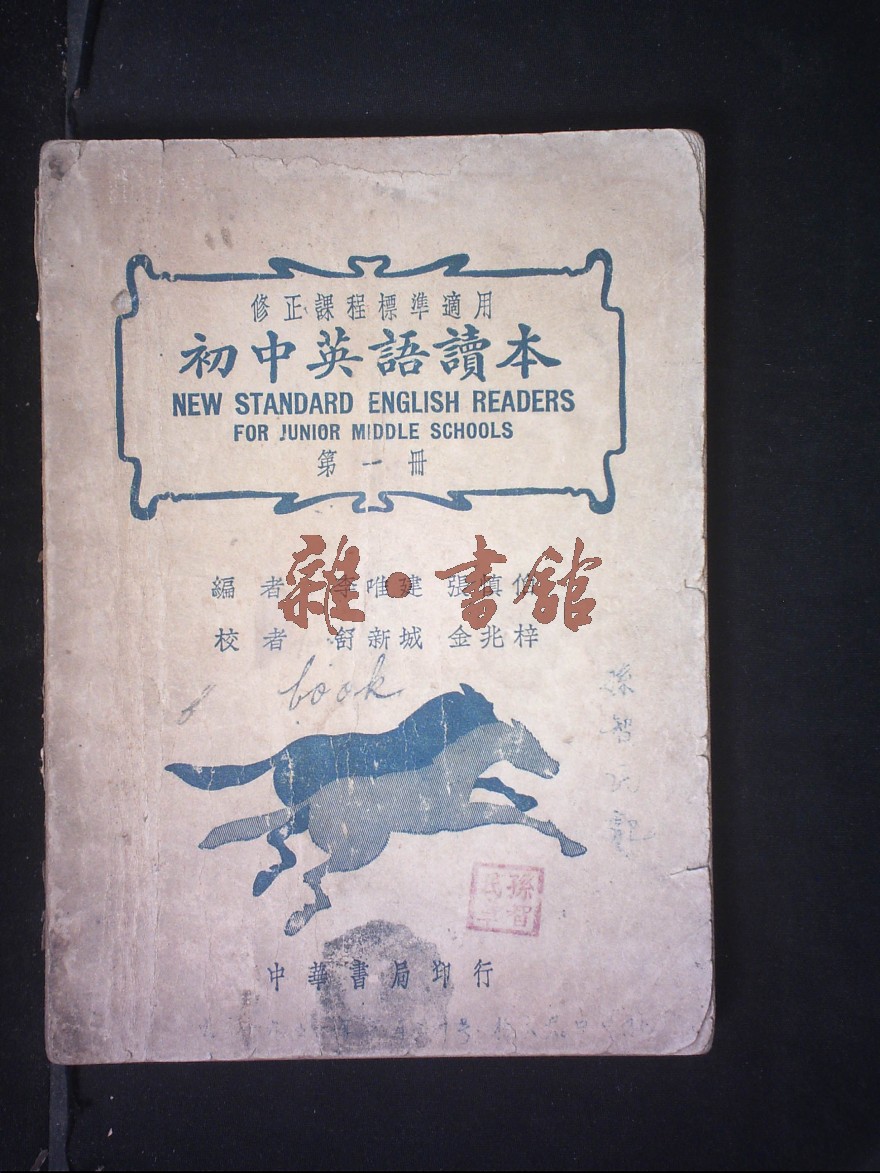 修正課程標準適用
初中英語讀本
NEW STANDARD ENGLISH READERS
FOR JUNIOR MIDDLE SCHOOLS
第一冊
雜·書館
編者 李唯建 張慎伯
校者 舒新城 金兆梓
book
孫智民記
孫智民
中華書局印行